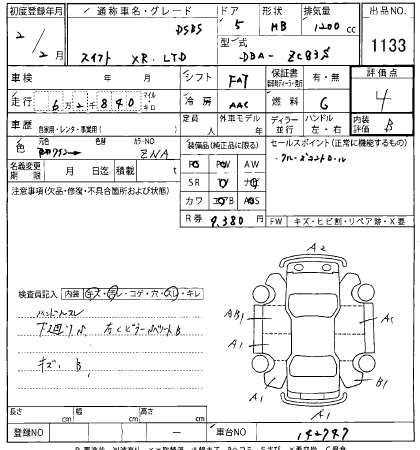 初度登録年月 通称車名・グレード ドア 形状 排気量 出品NO.
DSBS 5 HB 1200 cc
2 / 2月 スイフト XR.LTD 型式 DBA- ZC83S 1133
車検 年 月 シフト FAT 保証書 有・無 評価点
走行 6万2千840 マイル キロ 冷房 AAC 燃料 G 4
車歴 自家用・レンタ・事業用( ) 定員 人 外車モデル 年 ディーラー 並行 ハンドル 左・右 内装評価 B
色 元色 色替 カラーNO ZNA 装備品(純正品に限る) セールスポイント(正常に機能するもの)
PS PW AW ・クルーズコントロール
名義変更期限 月 日迄 積載 t SR TV ナビ
注意事項(欠品・修復・不具合箇所および状態) カワ エアB ABS
R券 9,380円 FW キズ・ヒビ割・リペア跡・X
検査員記入 内装 キズ・汚レ・コゲ・穴・スレ・キレ
ハンドルスレ
下廻りS
キズ、B
A2
AB1
A1
A1
A1
B1
A1
長さ cm 幅 cm 高さ cm
登録NO — 車台NO 142747